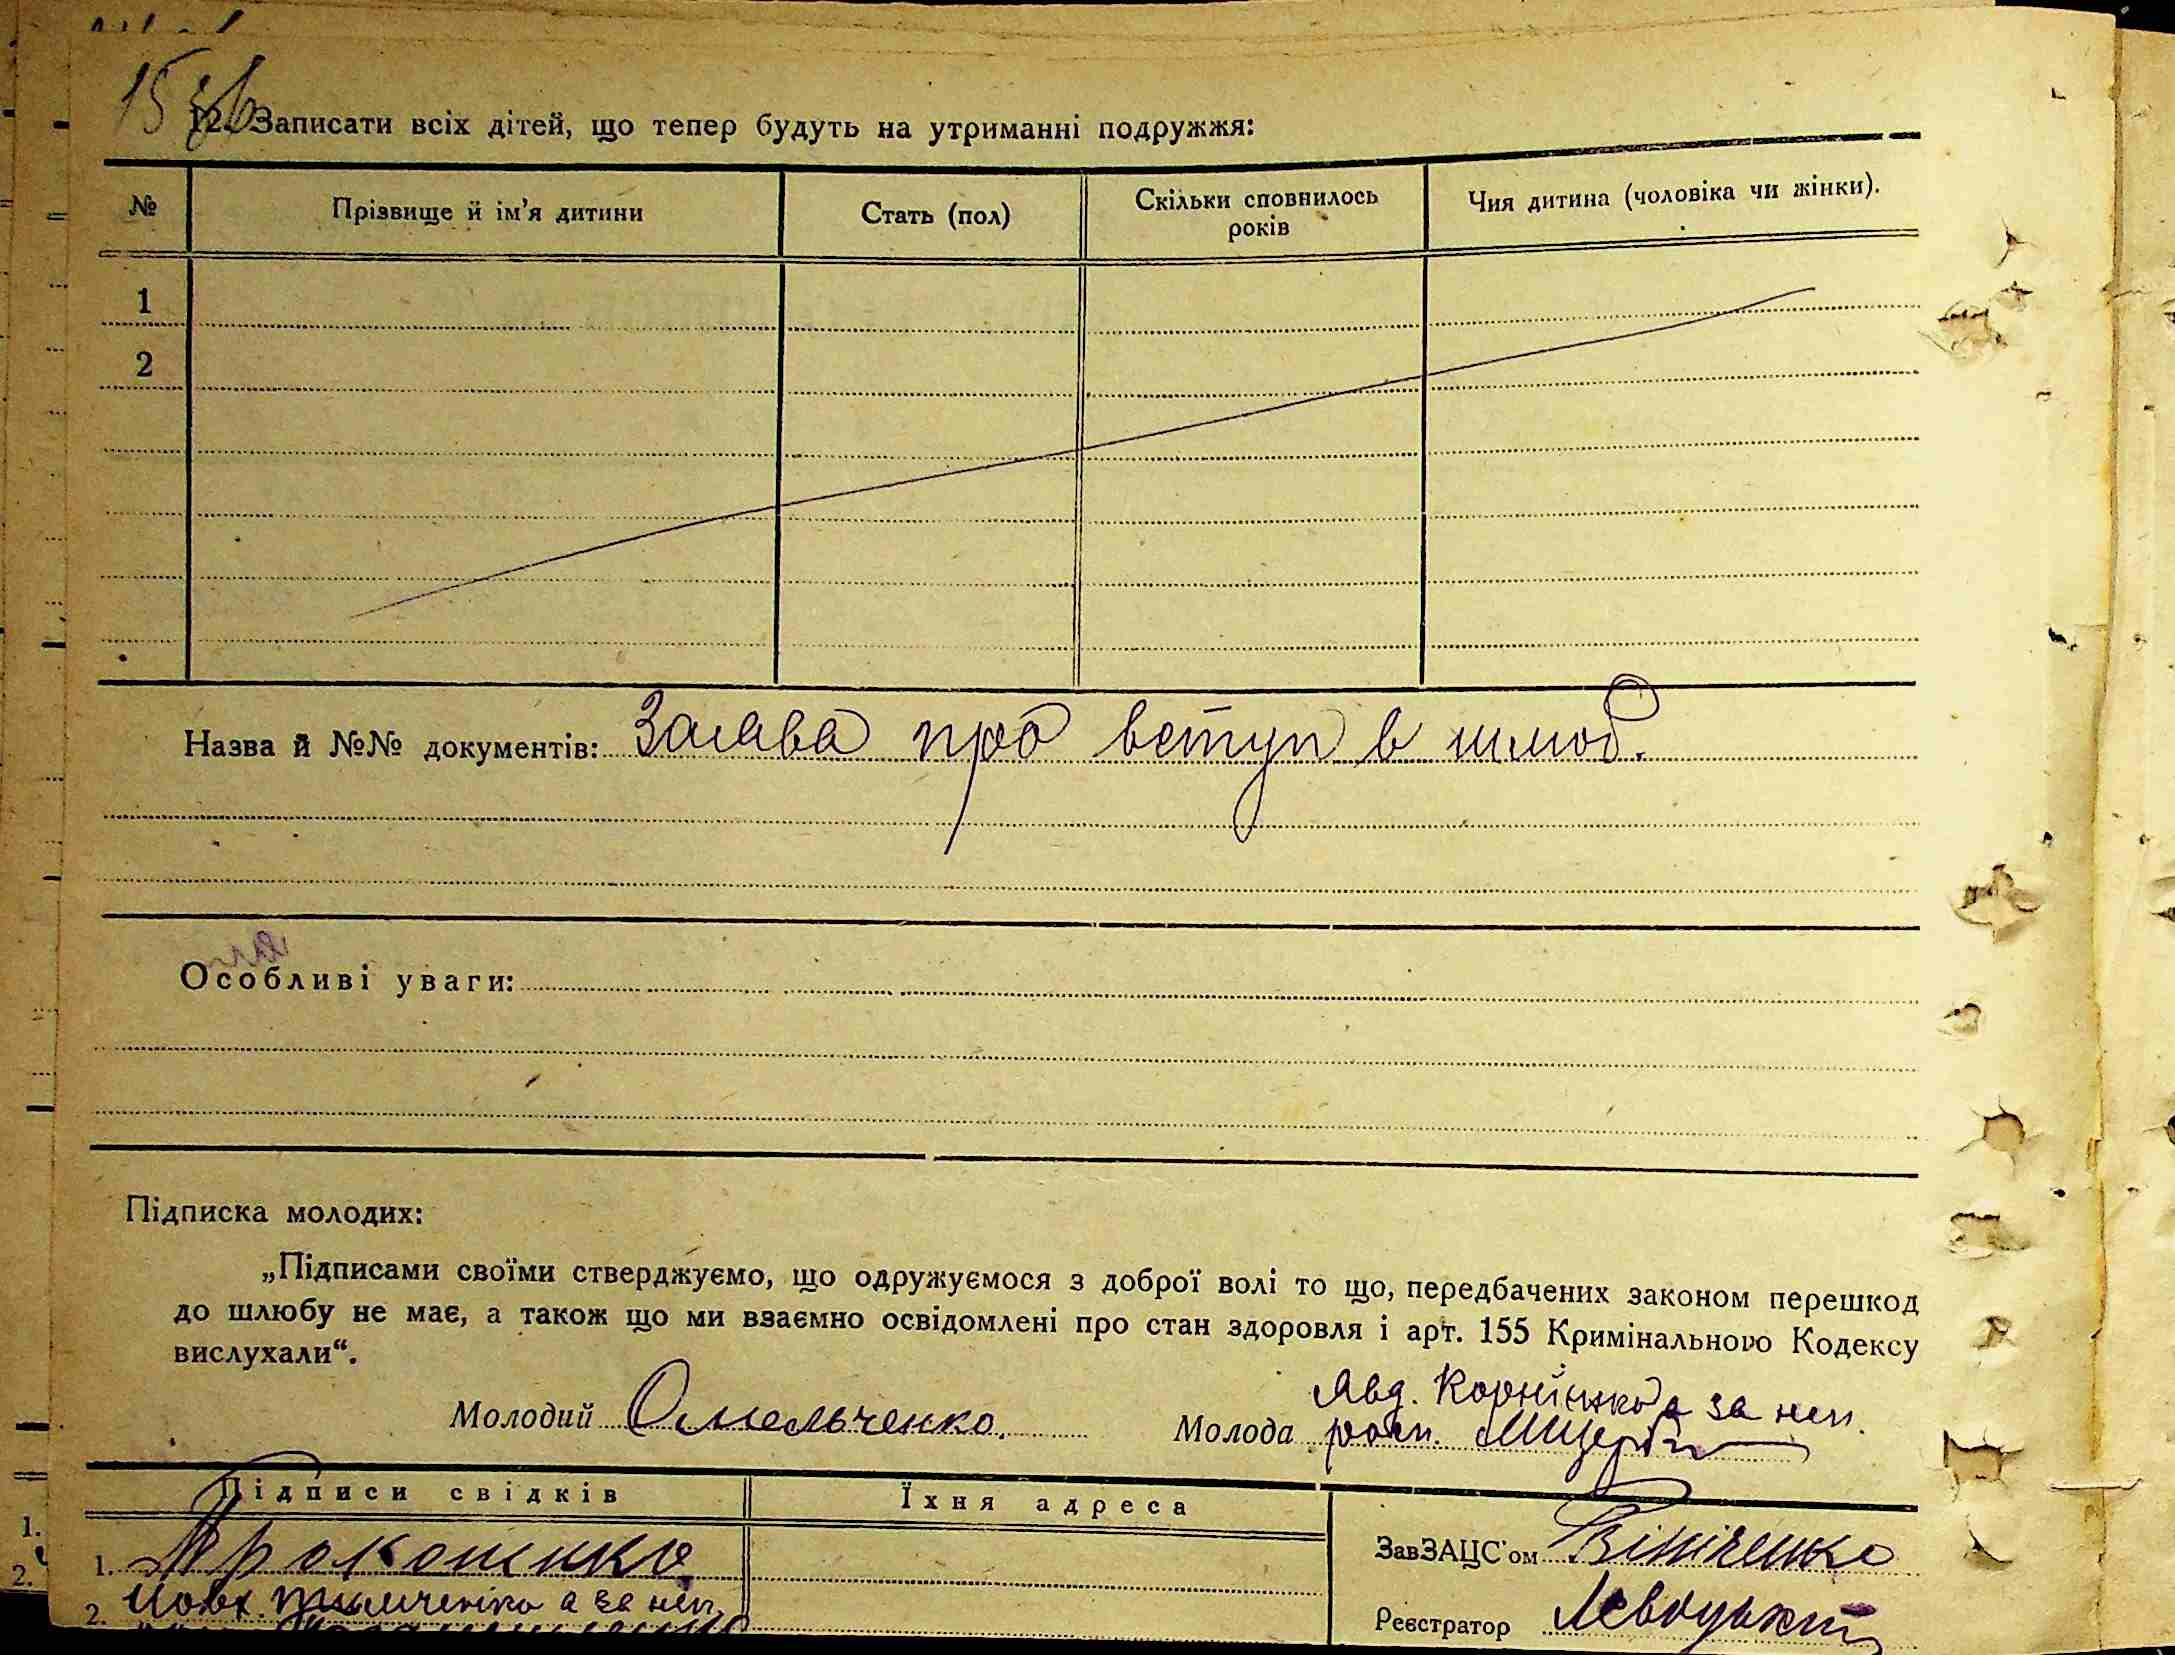 15 зв
12. Записати всіх дітей, що тепер будуть на утриманні подружжя:
№ Прізвище й ім'я дитини Стать (пол) Скільки сповнилось років Чия дитина (чоловіка чи жінки).
1
2
Назва й №№ документів: Заява про вступ в шлюб.
Особливі уваги:
Підписка молодих:
„Підписами своїми стверджуємо, що одружуємося з доброї волі то що, передбачених законом перешкод
до шлюбу не має, а також що ми взаємно освідомлені про стан здоровля і арт. 155 Кримінального Кодексу
вислухали“.
Молодий Омельченко.
Явд. Корнієнко а за неп.
Молода розп.
Підписи свідків Їхня адреса
ЗавЗАЦС'ом Вініченко
1. Прокопенко
2. а за неп.
Реєстратор
1.
2.